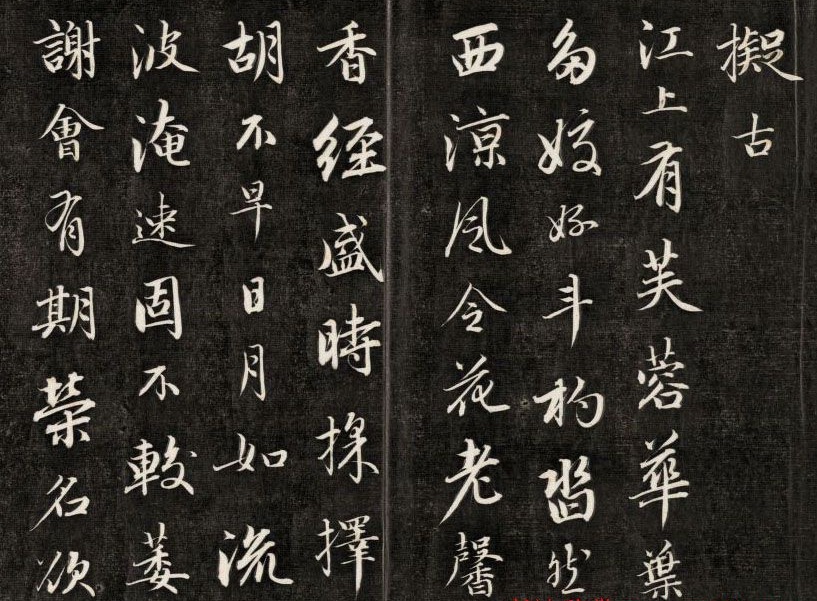 擬古
江上有芙蓉華葉
多姣好斗杓曶然
西涼風令花老馨
香經盛時採擇
胡不早日月如流
波淹速固不較萎
謝會有期榮名欲